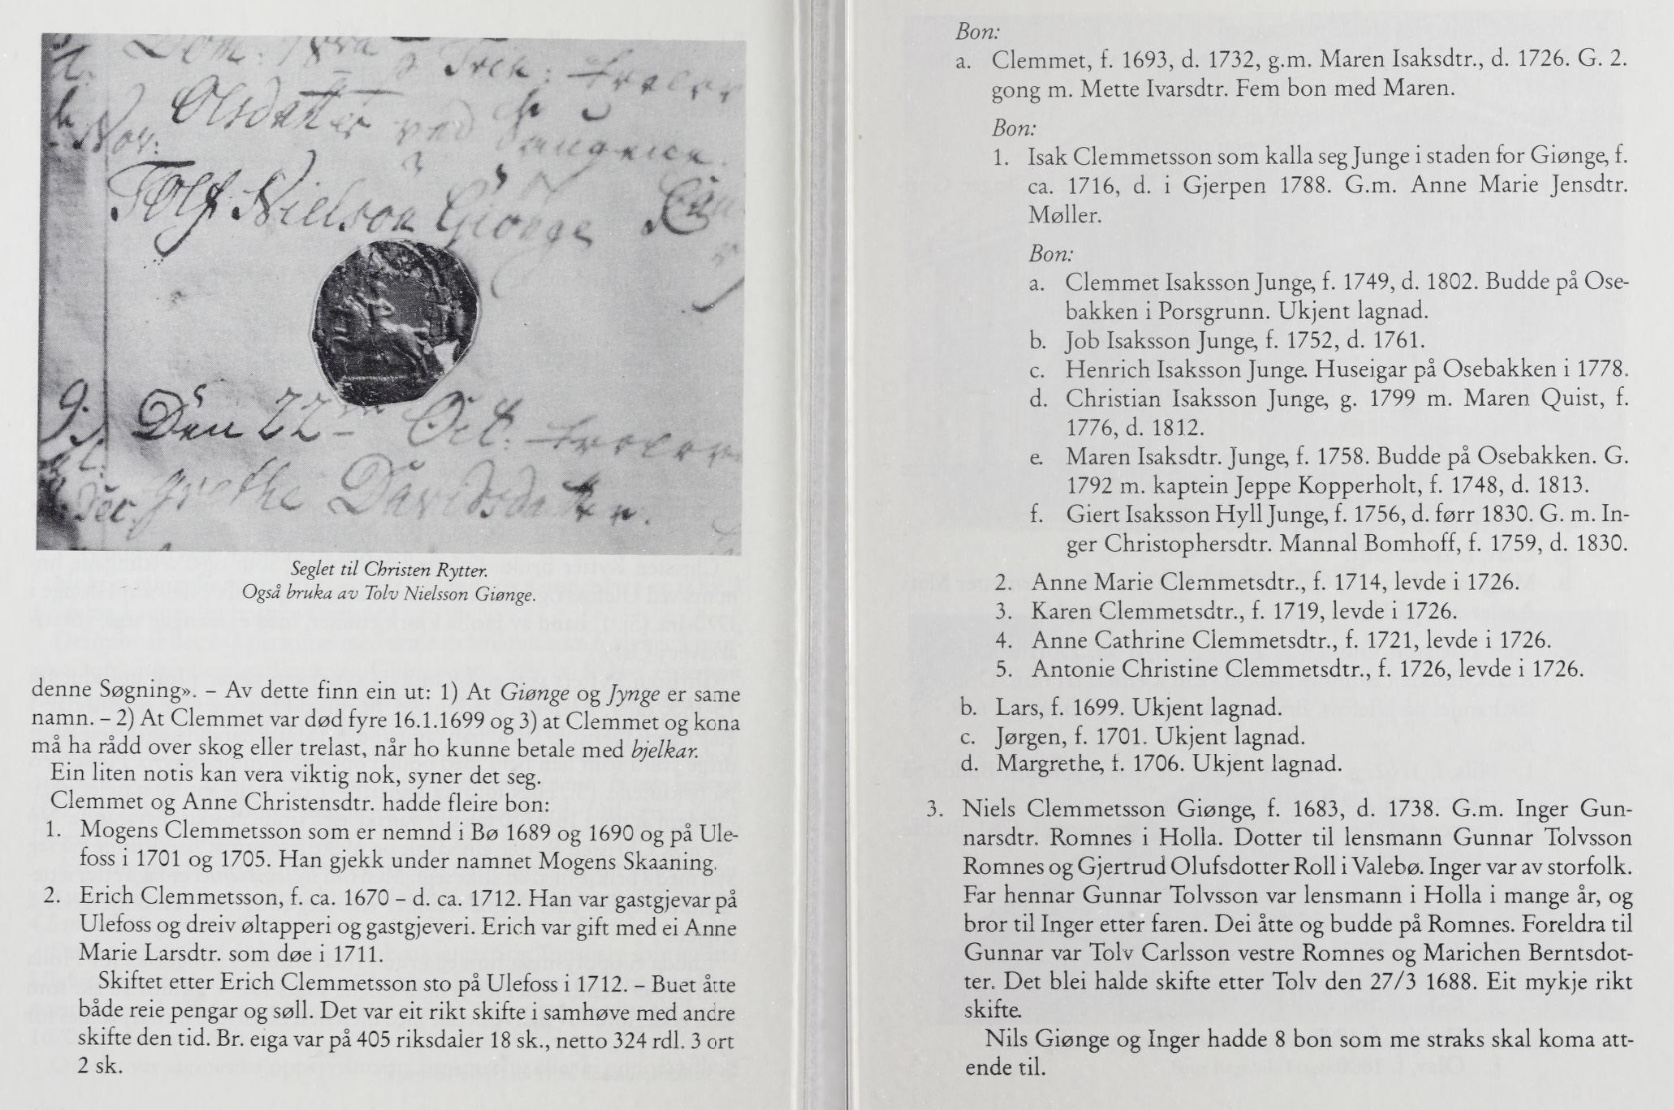 Olsdatter ved
Nov:
Tolf Nielson Giönge
9.
Den 22 Oct:
Grethe Davidsdatter.
Seglet til Christen Rytter.
Også bruka av Tolv Nielsson Giønge.
denne Søgning». – Av dette finn ein ut: 1) At Giønge og Jynge er same
namn. – 2) At Clemmet var død fyre 16.1.1699 og 3) at Clemmet og kona
må ha rådd over skog eller trelast, når ho kunne betale med bjelkar.
Ein liten notis kan vera viktig nok, syner det seg.
Clemmet og Anne Christensdtr. hadde fleire bon:
1. Mogens Clemmetsson som er nemnd i Bø 1689 og 1690 og på Ule-
foss i 1701 og 1705. Han gjekk under namnet Mogens Skaaning.
2. Erich Clemmetsson, f. ca. 1670 – d. ca. 1712. Han var gastgjevar på
Ulefoss og dreiv øltapperi og gastgjeveri. Erich var gift med ei Anne
Marie Larsdtr. som døe i 1711.
Skiftet etter Erich Clemmetsson sto på Ulefoss i 1712. – Buet åtte
både reie pengar og søll. Det var eit rikt skifte i samhøve med andre
skifte den tid. Br. eiga var på 405 riksdaler 18 sk., netto 324 rdl. 3 ort
2 sk.
Bon:
a. Clemmet, f. 1693, d. 1732, g.m. Maren Isaksdtr., d. 1726. G. 2.
gong m. Mette Ivarsdtr. Fem bon med Maren.
Bon:
1. Isak Clemmetsson som kalla seg Junge i staden for Giønge, f.
ca. 1716, d. i Gjerpen 1788. G.m. Anne Marie Jensdtr.
Møller.
Bon:
a. Clemmet Isaksson Junge, f. 1749, d. 1802. Budde på Ose-
bakken i Porsgrunn. Ukjent lagnad.
b. Job Isaksson Junge, f. 1752, d. 1761.
c. Henrich Isaksson Junge. Huseigar på Osebakken i 1778.
d. Christian Isaksson Junge, g. 1799 m. Maren Quist, f.
1776, d. 1812.
e. Maren Isaksdtr. Junge, f. 1758. Budde på Osebakken. G.
1792 m. kaptein Jeppe Kopperholt, f. 1748, d. 1813.
f. Giert Isaksson Hyll Junge, f. 1756, d. førr 1830. G. m. In-
ger Christophersdtr. Mannal Bomhoff, f. 1759, d. 1830.
2. Anne Marie Clemmetsdtr., f. 1714, levde i 1726.
3. Karen Clemmetsdtr., f. 1719, levde i 1726.
4. Anne Cathrine Clemmetsdtr., f. 1721, levde i 1726.
5. Antonie Christine Clemmetsdtr., f. 1726, levde i 1726.
b. Lars, f. 1699. Ukjent lagnad.
c. Jørgen, f. 1701. Ukjent lagnad.
d. Margrethe, f. 1706. Ukjent lagnad.
3. Niels Clemmetsson Giønge, f. 1683, d. 1738. G.m. Inger Gun-
narsdtr. Romnes i Holla. Dotter til lensmann Gunnar Tolvsson
Romnes og Gjertrud Olufsdotter Roll i Valebø. Inger var av storfolk.
Far hennar Gunnar Tolvsson var lensmann i Holla i mange år, og
bror til Inger etter faren. Dei åtte og budde på Romnes. Foreldra til
Gunnar var Tolv Carlsson vestre Romnes og Marichen Berntsdot-
ter. Det blei halde skifte etter Tolv den 27/3 1688. Eit mykje rikt
skifte.
Nils Giønge og Inger hadde 8 bon som me straks skal koma att-
ende til.